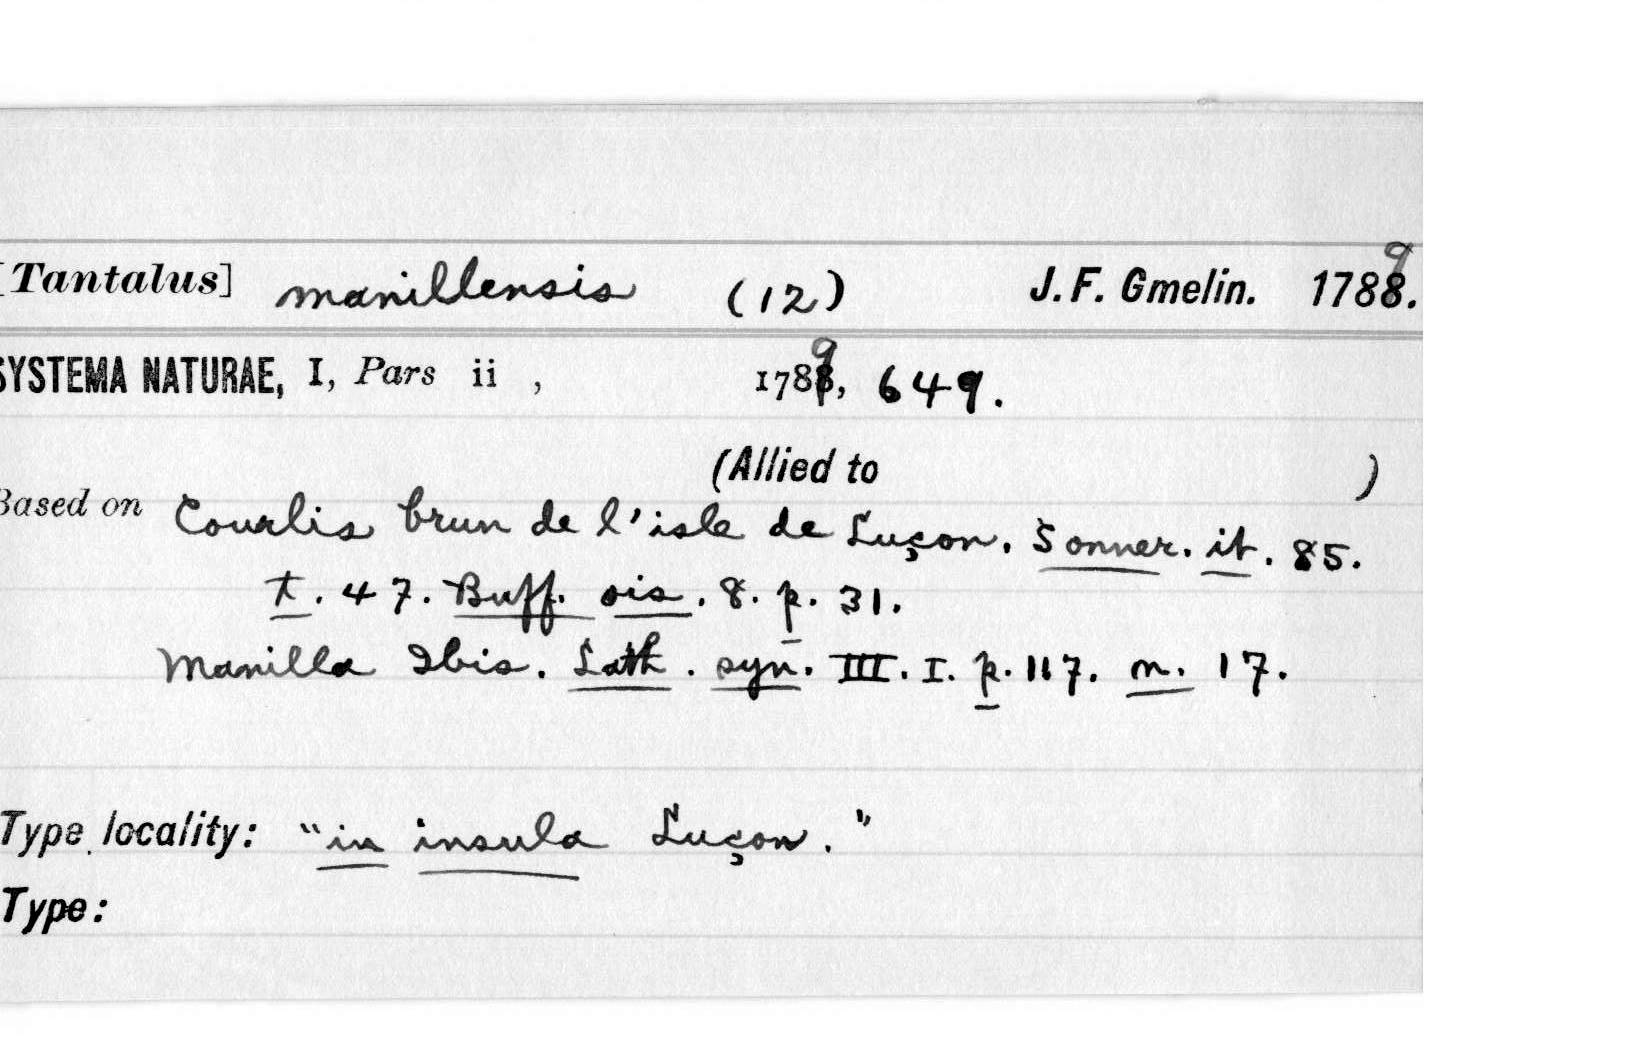 [Tantalus] manillensis (12) J. F. Gmelin. 1789.
SYSTEMA NATURAE, I, Pars ii , 1789, 649.
(Allied to )
Based on Courlis brun de l'isle de Luçon. Sonner. it. 85.
t. 47. Buff. ois. 8. p. 31.
Manilla Ibis. Lath. syn. III. I. p. 117. n. 17.
Type locality: "in insula Luçon."
Type: